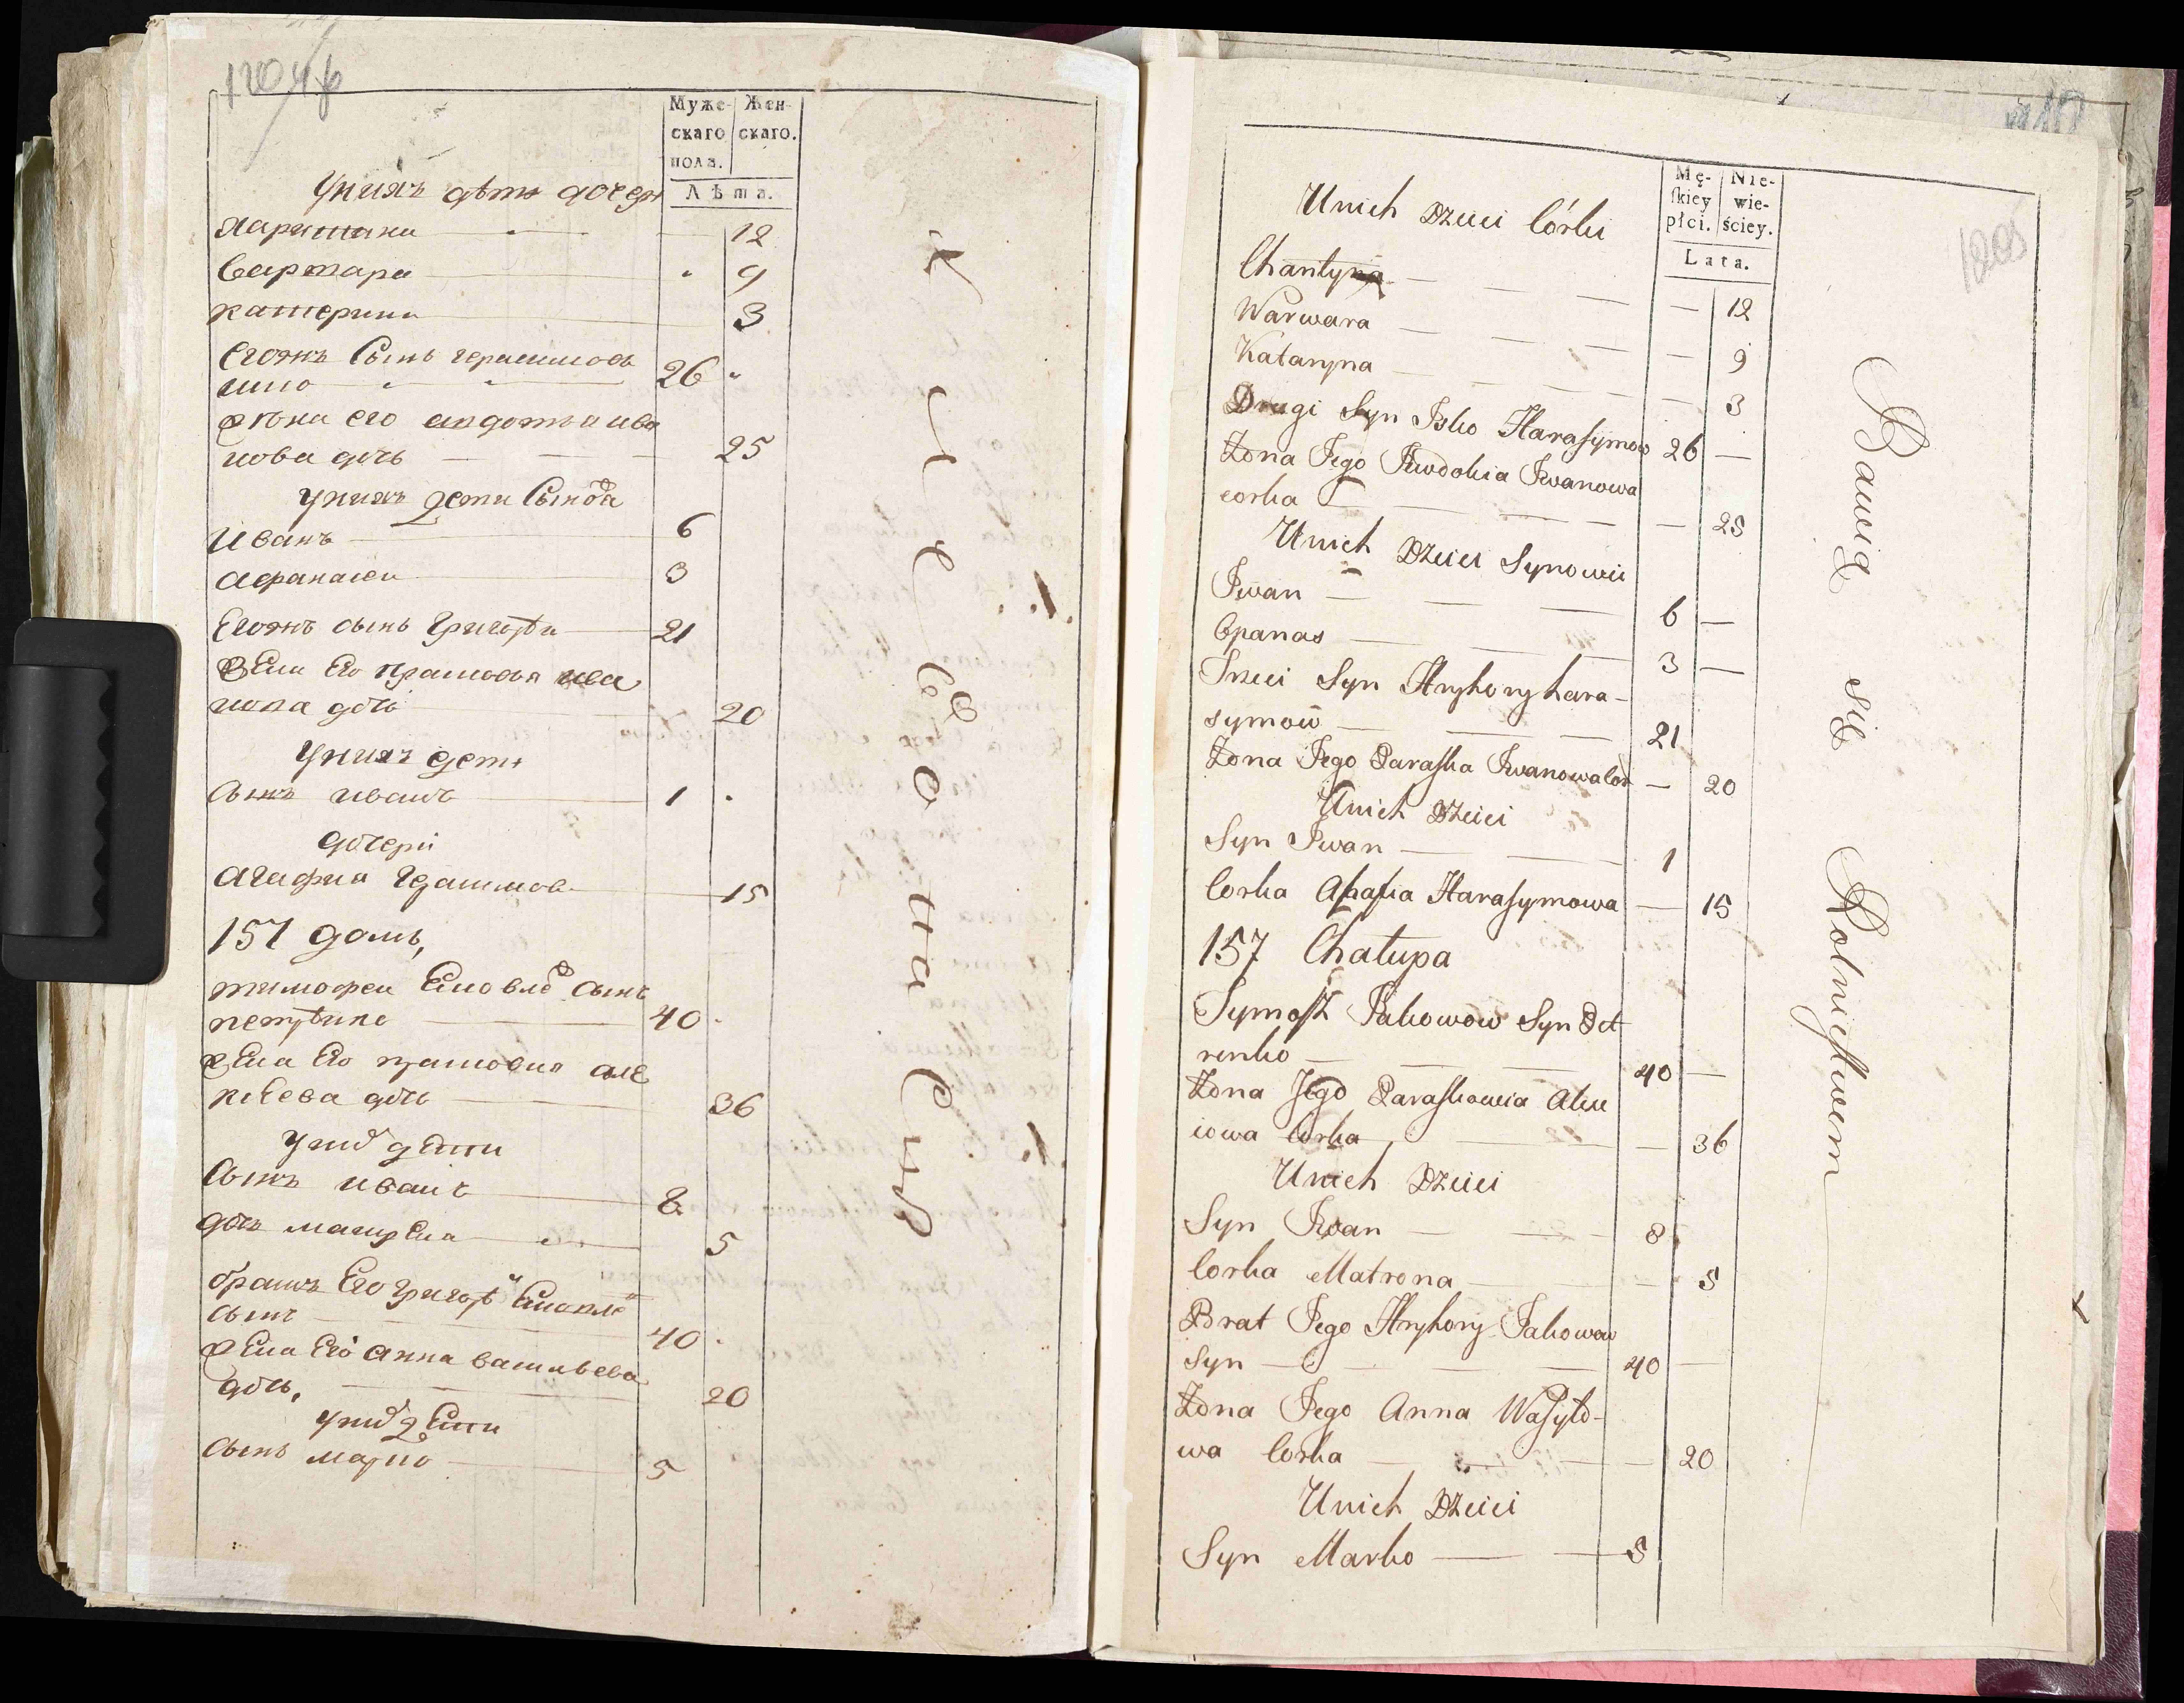 Муже-
скаго
пола.
Жен-
скаго.
Лѣта.
Унихъ дѣти дочери
Харитини 12
Варвара 9
Катерина 3
Егожъ Сынъ герасимовъ
26
жѣна его авдотья ива
нова дочь 25
Унихъ дети Сынова
Иванъ 6
Афанасеи 3
Егожъ сынъ Григорѣи 21
жена Его Прасковья ива
нова дочь 20
Унихъ дети
Сынъ иванъ 1
дочери
Агафия Герасимов 15
157 домъ,
тимофеи Яковле сынъ
петренко 40
жена Его прасковия але
ксѣева дочь 36
Уних дети
Сынъ иванъ 8
дочь матрена 5
братъ Его Григорѣй Яковле
сынъ 40
жена Его анна васильева
дочь, 20
Уних дети
Сынъ марко 5
1205
Mę-
skiey
płci.
Nie-
wie-
ściey.
Lata.
Unich Dzieci Córki
12
Warwara 9
Kataryna 3
Drugi Syn Isko Harasymow 26
Żona Jego Jewdokia Iwanowa
corka 25
Unich Dzieci Synowie
Iwan 6
Opanas 3
Trzeci Syn Hryhory hara-
symow 21
Żona Jego Paraska Iwanowa Cor 20
Unich Dzieci
Syn Iwan 1
Corka Ahafia Harasymowa 15
157 Chałupa
Tymofij Jakowow Syn Pet
renko 40
Żona Jego Paraskowia Alex
iowa Corka 36
Unich Dzieci
Syn Iwan 8
Corka Matrona 5
Brat Jego Hryhory Jakowow
Syn 40
Żona Jego Anna Wasylo-
wa Corka 20
Unich Dzieci
Syn Marko 5
Bawią się Rolnictwem